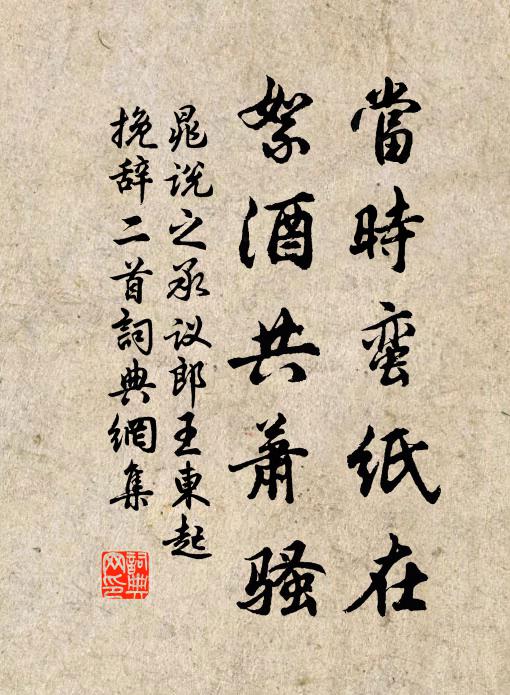 當時蛮紙在
絮酒共萧骚
晁说之承议郎王東起
挽辞二首詞典網集
詞典网印